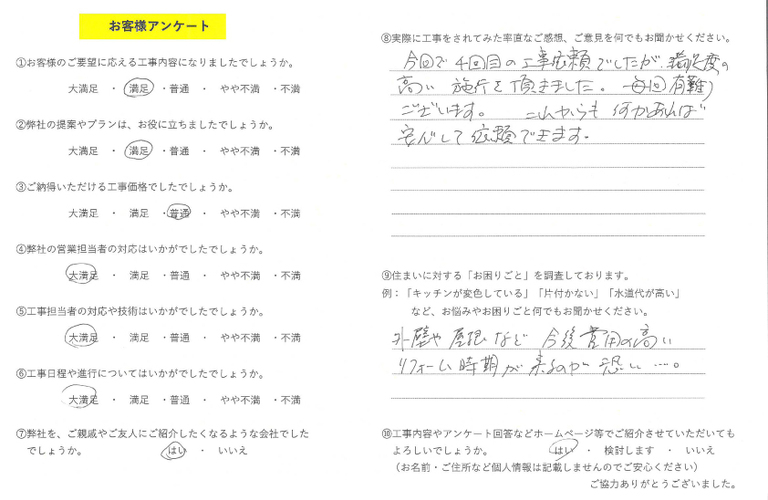 お客様アンケート
①お客様のご要望に応える工事内容になりましたでしょうか。
大満足 ・ 満足 ・普通 ・ やや不満 ・不満
②弊社の提案やプランは、お役に立ちましたでしょうか。
大満足 ・ 満足 ・普通 ・ やや不満 ・不満
③ご納得いただける工事価格でしたでしょうか。
大満足 ・ 満足 ・普通 ・ やや不満 ・不満
④弊社の営業担当者の対応はいかがでしたでしょうか。
大満足 ・ 満足 ・普通 ・ やや不満 ・不満
⑤工事担当者の対応や技術はいかがでしたでしょうか。
大満足 ・ 満足 ・普通 ・ やや不満 ・不満
⑥工事日程や進行についてはいかがでしたでしょうか。
大満足 ・ 満足 ・普通 ・ やや不満 ・不満
⑦弊社を、ご親戚やご友人にご紹介したくなるような会社でした
でしょうか。 はい ・ いいえ
⑧実際に工事をされてみた率直なご感想、ご意見を何でもお聞かせください。
今回で4回目の工事依頼でしたが、満足度の
高い 施行を頂きました。毎回有難う
ございます。 これからも 何かあれば
安心して依頼できます。
⑨住まいに対する「お困りごと」を調査しております。
例：「キッチンが変色している」「片付かない」「水道代が高い」
など、お悩みやお困りごと何でもお聞かせください。
外壁や屋根など 今後費用の高い
リフォーム時期が来るのが 恐い…。
⑩工事内容やアンケート回答などホームページ等でご紹介させていただいても
よろしいでしょうか。 はい ・ 検討します ・ いいえ
（お名前・ご住所など個人情報は記載しませんのでご安心ください）
ご協力ありがとうございました。